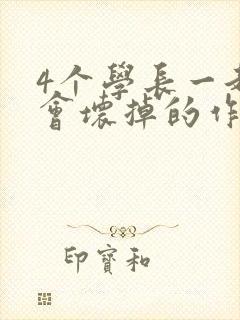 4个學長一
會壞掉的作
印寶和